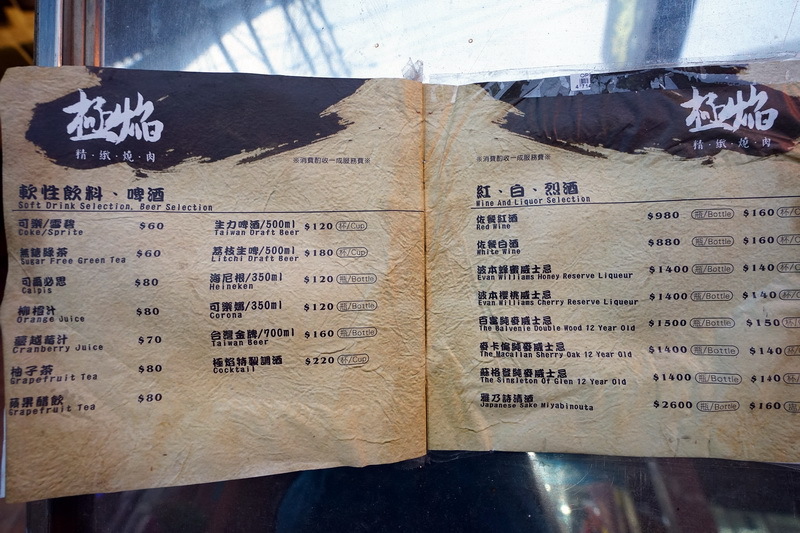 極焰
精．緻．燒．肉
※消費酌收一成服務費※
軟性飲料、啤酒
Soft Drink Selection, Beer Selection
可樂/雪碧 $60
Coke/Sprite
無糖綠茶 $60
Sugar Free Green Tea
可爾必思 $80
Calpis
柳橙汁 $80
Orange Juice
蔓越莓汁 $70
Cranberry Juice
柚子茶 $80
Grapefruit Tea
蘋果醋飲 $80
Grapefruit Tea
生力啤酒/500ml $120 杯/Cup
Taiwan Draft Beer
荔枝生啤/500ml $180 杯/Cup
Litchi Draft Beer
海尼根/350ml $120 瓶/Bottle
Heineken
可樂娜/350ml $120 瓶/Bottle
Corona
台灣金牌/700ml $160 瓶/Bottle
Taiwan Beer
極焰特製調酒 $220 杯/Cup
Cocktail
極焰
精．緻．燒．肉
※消費酌收一成服務費※
紅、白、烈酒
Wine And Liquor Selection
佐餐紅酒 $980 瓶/Bottle $160
Red Wine
佐餐白酒 $880 瓶/Bottle $160
White Wine
波本蜂蜜威士忌 $1400 瓶/Bottle $140
Evan Williams Honey Reserve Liqueur
波本櫻桃威士忌 $1400 瓶/Bottle $140
Evan Williams Cherry Reserve Liqueur
百富純麥威士忌 $1500 瓶/Bottle $150
The Balvenie Double Wood 12 Year Old
麥卡倫純麥威士忌 $1400 瓶/Bottle $140
The Macallan Sherry Oak 12 Year Old
蘇格登純麥威士忌 $1400 瓶/Bottle $140
The Singleton Of Glen 12 Year Old
雅乃詩清酒 $2600 瓶/Bottle $160
Japanese Sake Miyabinouta